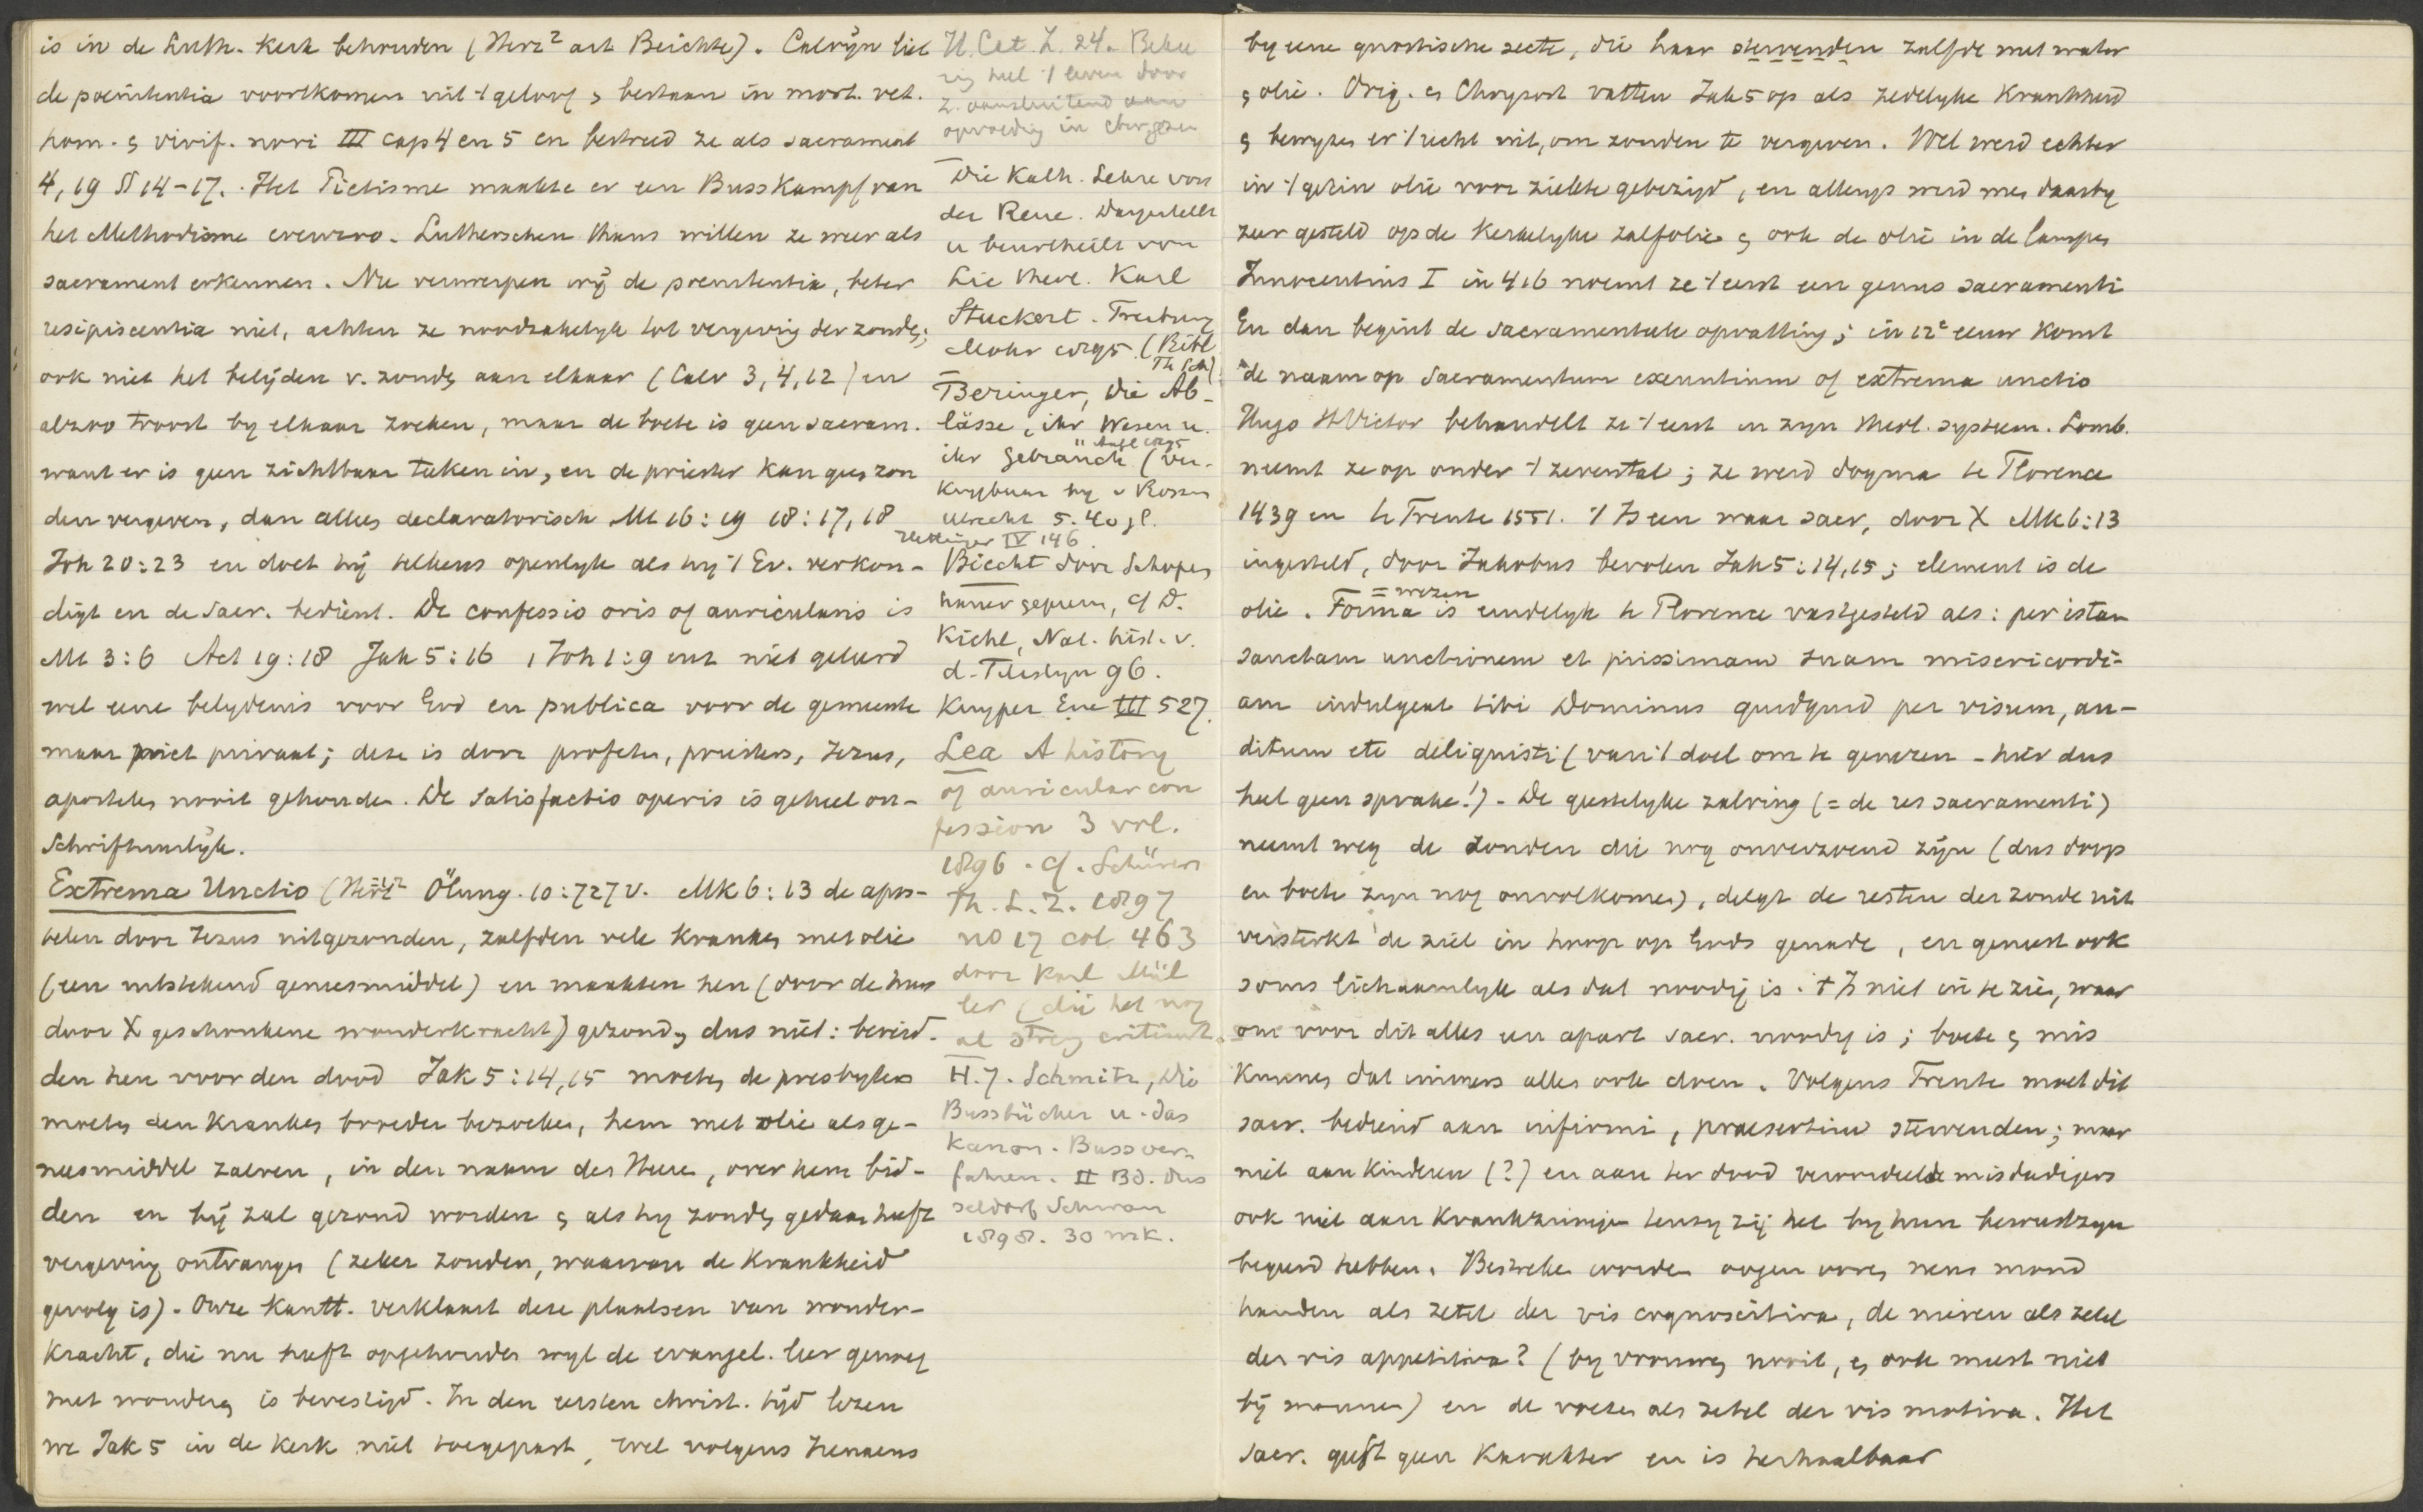 is in de Luth. Kerk behouden (Herz² art Beichte). Calvijn liet
de poenitentia voortkomen uit 't geloof & bestaan in mort. vet.
hom. & vivif. novi III cap 4 en 5 en bestreed ze als sacrament
4, 19 § 14-17. Het Piëtisme maakte er een Busskampf van
het Methodisme evenzoo. Lutherschen thans willen ze weer als
sacrament erkennen. Nu verwerpen wij de poenitentia, beter
resipiscentia niet, achten ze noodzakelyk tot vergeving der zonden;
ook niet het belijden v. zonden aan elkaar (Calv 3, 4, 12) en
alzoo troost by elkaar zoeken, maar de boete is geen sacram.
want er is geen zichtbaar teken in, en de priester kan geen zon
den vergeven, dan alleen declaratorisch Mt 16:19 18:17, 18
Joh 20:23 en doet hij telkens openlyk als hy 't Ev. verkon-
digt en de Sacr. bedient. De confessio oris of auricularis is
Mt 3:6 Act 19:18 Jak 5:16 1 Joh 1:9 enz niet geleerd
wel eene belydenis voor God en publica voor de gemeente
maar niet privaat; deze is door profeten, priesters, Jezus,
apostelen nooit gehouden. De Satisfactio operis is geheel on-
Schriftuurlijk.
Extrema Unctio (Herz² Ölung. 10:727 v. Mk 6:13 de apos-
telen door Jezus uitgezonden, zalfden vele kranken met olie
(een uitstekend geneesmiddel) en maakten hen (door de hun
door X geschonkene wonderkracht) gezond, dus niet: bereid-
den hen voor den dood Jak 5:14, 15 moeten de presbyters
moeten den kranken broeder bezoeken, hem met olie als ge-
neesmiddel zalven, in den naam des Heere, over hem bid-
den en hij zal gezond worden & als hy zonden gedaan heeft
vergeving ontvangen (zeker zonden, waarvan de krankheid
gevolg is). Onze Kantt. verklaart deze plaatsen van wonder-
kracht, die nu heeft opgehouden wyl de evangel. leer genoeg
met wonderen is bevestigd. In den eersten christ. tijd lezen
we Jak 5 in de Kerk niet toegepast, wel volgens Irenaeus
H. Cat. Z. 24. Beke
ring heel 't leven door
Z. aansluitend aan
opvoeding in
Die Kath. Lehre von
der Reue. Dargestellt
u beurtheilt von
Lic theol. Karl
Stuckert. Freiburg
Mohr 1895. (Bibl
Th Sch)
Beringer, die Ab-
lässe, ihr Wesen u.
ihr Gebrauch (ver-
11 Aufl 1895
krijgbaar by v Rossum
Utrecht 5.40 fl.
Hettinger IV 146.
Biecht door Schopen
hauer geprezen, cf D.
Kiehl, Nat. hist. v.
d. Tilislyn 96.
Kuyper Enc III 527.
Lea A history
of auricular con
fession 3 vol.
1896. cf. Schürers
Th. L. Z. 1897
no 17 col 463
door Karl Mül
ler (die het nog
al streng critiseert.
H. J. Schmitz, Die
Bussbücher u. das
Kanon. Bussver-
fahren. II Bd. Dus
seldorf Schwan
1898. 30 mk.
by eene gnostische secte, die haar stervenden zalfde met water
& olie. Orig. en Chrysost vatten Jak 5 op als zedelyke krankheid
& bewyzen er 't recht uit, om zonden te vergeven. Wel werd echter
in 't gezin olie voor ziekte gebezigd, en allengs werd men daarby
zeer gesteld op de kerkelyke zalfolie & ook de olie in de lampen
Innocentius I in 416 noemt ze 't eerst een genus sacramenti
En dan begint de sacramenteele opvatting; in 12e eeuw komt
de naam op Sacramentum exeuntium of extrema unctio
Hugo St Victor behandelt ze 't eerst in zyn theol. systeem. Lomb.
neemt ze op onder 't zevental; ze werd dogma te Florence
1439 en te Trente 1551. 't Is een waar sacr, door X Mk 6:13
ingesteld, door Jakobus bevolen Jak 5:14, 15; element is de
= wezen
olie. Forma is eindelyk te Florence vastgesteld als: per istam
sanctam unctionem et piissimam suam misericordi-
am indulgeat tibi Dominus quidquid per visum, au-
ditum etc deliquisti (van 't doel om te genezen - hier dus
heel geen sprake!) - De geestelyke zalving (= de res sacramenti)
neemt weg de zonden die nog onverzoend zijn (dus doop
en boete zyn nog onvolkomen), delgt de resten der zonde uit
versterkt de ziel in hoop op Gods genade, en geneest ook
soms lichaamlyk als dat noodig is. 't Is niet in te zien, waar
om voor dit alles een apart sacr. noodig is; boete & mis
kunnen dat immers alles ook doen. Volgens Trente moet dit
sacr. bediend aan infirmi, praesertim stervenden; maar
niet aan kinderen (?) en aan ter dood veroordeelde misdadigers
ook niet aan krankzinnigen tenzy zij het by hun bewustzyn
begeerd hebben. Bestreken worden oogen ooren neus mond
handen als zetel der vis cognoscitiva, de nieren als zetel
der vis appetitiva? (by vrouwen nooit, & ook meest niet
bij mannen) en de voeten als zetel der vis motiva. Het
Sacr. geeft geen karakter en is herhaalbaar